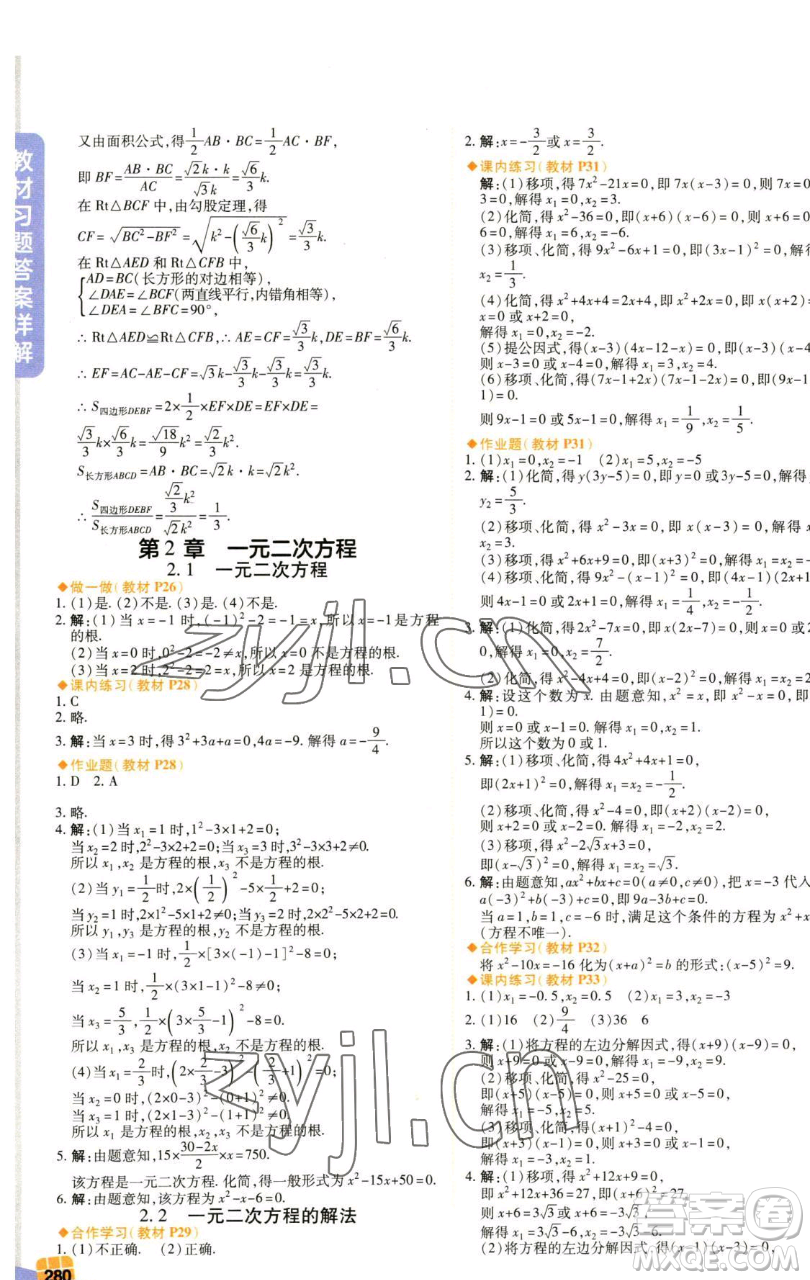 教材习题答案详解
又由面积公式,得1/2AB·BC=1/2AC·BF,
即BF=AB·BC/AC=√2k·k/√3k=√6/3k.
在Rt△BCF中,由勾股定理,得
CF=√(BC²-BF²)=√(k²-(√6/3k)²)=√3/3k.
在Rt△AED和Rt△CFB中,
AD=BC(长方形的对边相等),
∠DAE=∠BCF(两直线平行,内错角相等),
∠DEA=∠BFC=90°,
∴Rt△AED≌Rt△CFB,∴AE=CF=√3/3k,DE=BF=√6/3k.
∴EF=AC-AE-CF=√3k-√3/3k-√3/3k=√3/3k.
∴S四边形DEBF=2×1/2×EF×DE=EF×DE=
√3/3k×√6/3k=√18/9k²=√2/3k².
S长方形ABCD=AB·BC=√2k·k=√2k².
∴S四边形DEBF/S长方形ABCD=(√2/3k²)/(√2k²)=1/3.
第2章 一元二次方程
2.1 一元二次方程
◆做一做(教材P26)
1.(1)是.(2)不是.(3)是.(4)不是.
2.解:(1)当x=-1时,(-1)²-2=-1=x,所以x=-1是方程
的根.
(2)当x=0时,0²-2=-2≠x,所以x=0不是方程的根.
(3)当x=2时,2²-2=2=x,所以x=2是方程的根.
◆课内练习(教材P28)
1.C
2.略.
3.解:当x=3时,得3²+3a+a=0,4a=-9.解得a=-9/4.
◆作业题(教材P28)
1.D 2.A
3.略.
4.解:(1)当x₁=1时,1²-3×1+2=0;
当x₂=2时,2²-3×2+2=0.
所以x₁,x₂是方程的根.
(2)当y₁=1/2时,2×(1/2)²-1/2=0;
当y₂=1时,2×1²-5×1-2≠0.
(3)当x₁=1时,1/2×[3×(-1)-1]²-8=0;
当x₂=3时,1/2×(3×3-1)²-8≠0.
当x₃=5/3时,1/2×(3×5/3-1)²-8=0.
所以x₁,x₃是方程的根,x₂不是方程的根.
当x₂=0时,(2×0-3)²-(0+1)²≠0.
当x₃=1时,(2×1-3)²-(1+1)²≠0.
所以x₁是方程的根,x₂,x₃不是方程的根.
5.解:由题意知,15×(30-2x)/2×x=750.
该方程是一元二次方程.化简,得一般形式为x²-15x+50=0.
6.解:由题意知,该方程为x²-x-6=0.
2.2 一元二次方程的解法
◆合作学习(教材P29)
1.(1)不正确. (2)正确.
280
2.解:x=-3/2或x=3/2.
◆课内练习(教材P31)
解:(1)移项,得7x²-21x=0,即7x(x-3)=0,则7x=0
3=0,解得x₁=0,x₂=3.
(2)化简,得x²-36=0,即(x+6)(x-6)=0,则x+6
0,解得x₁=-6,x₂=6.
(3)移项、化简,得9x²-6x+1=0,即(3x-1)²=0,解得
x₂=1/3.
(4)化简,得x²+4x+4=2x+4,即x²+2x=0,即x(x+2)=
x=0或x+2=0,
解得x₁=0,x₂=-2.
(5)提公因式,得(x-3)(4x-12-x)=0,即(x-3)(
则x-3=0或x-4=0,解得x₁=3,x₂=4.
(6)移项、化简,得(7x-1+2x)(7x-1-2x)=0,即(9x-1
1)=0.
则9x-1=0或5x-1=0,解得x₁=1/9,x₂=1/5.
◆作业题(教材P31)
1.(1)x₁=0,x₂=-1 (2)x₁=5,x₂=-5
2.解:(1)化简,得y(3y-5)=0,即y=0或3y-5=0,解得
y₂=5/3.
(2)移项、化简,得x²-3x=0,即x(x-3)=0,解得
x₂=3.
(3)移项,得x²+6x+9=0,即(x+3)²=0,解得x₁=
(4)移项,得9x²-(x-1)²=0,即(3x+x-1)(3x-x+1)
则4x-1=0或2x+1=0,解得x₁=1/4,x₂=-1/2.
3.解:(1)移项、化简,得2x²-7x=0,即x(2x-7)=0,则x=0
0,解得x₁=0,x₂=7/2.
(2)移项、化简,得x²-4x+4=0,即(x-2)²=0,解得x₁=
4.解:设这个数为x.由题意知,x²-x=0,即x(x-
1)=0.
则x=0或x-1=0.解得x₁=0,x₂=1.
所以这个数为0或1.
5.解:(1)移项、化简,得4x²+4x+1=0,
即(2x+1)²=0,解得x₁=x₂=-1/2.
(2)移项、化简,得x²-4=0,即(x+2)(x-2)=0,
则x+2=0或x-2=0.解得x₁=-2,x₂=2.
(3)移项、化简,得x²-2√3x+3=0,
即(x-√3)²=0,解得x₁=x₂=√3.
6.解:由题意知,ax²+bx+c=0(a≠0),把x=-3代入
a(-3)²+b(-3)+c=0,即9a-3b+c=0.
当a=1,b=1,c=-6时,满足这个条件的方程为x²+x
(方程不唯一).
◆合作学习(教材P32)
将x²-10x=-16化为(x+a)²=b的形式:(x-5)²=9.
◆课内练习(教材P33)
1.(1)x₁=-0.5,x₂=0.5 (2)x₁=-3,x₂=1
2.(1)16 (2)9/4 (3)36 6
3.解:(1)将方程的左边分解因式,得(x+9)(x-9)=0,
则x+9=0或x-9=0,解得x₁=-9,x₂=9.
(2)移项、化简,得x²-25=0,
即(x+5)(x-5)=0,
解得x₁=-5,x₂=5.
4.解:(1)移项,得x²+12x+9=0,
即x²+12x+36=27,即(x+6)²=27,
(2)将方程的左边分解因式,得(x-1)(x-3)=0,
zyjl.cn
zyjl.cn
答案圈